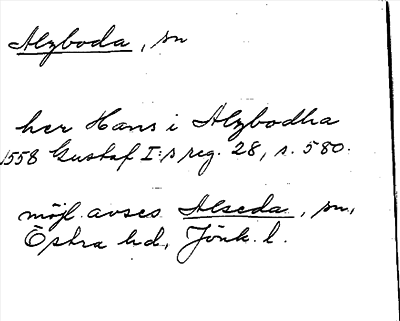 Alzboda, sn
her Hans i Alzbodha
1558 Gustaf I:s reg. 28, s. 580.
möjl. avses Alseda, sn,
Östra hd, Jönk. l.